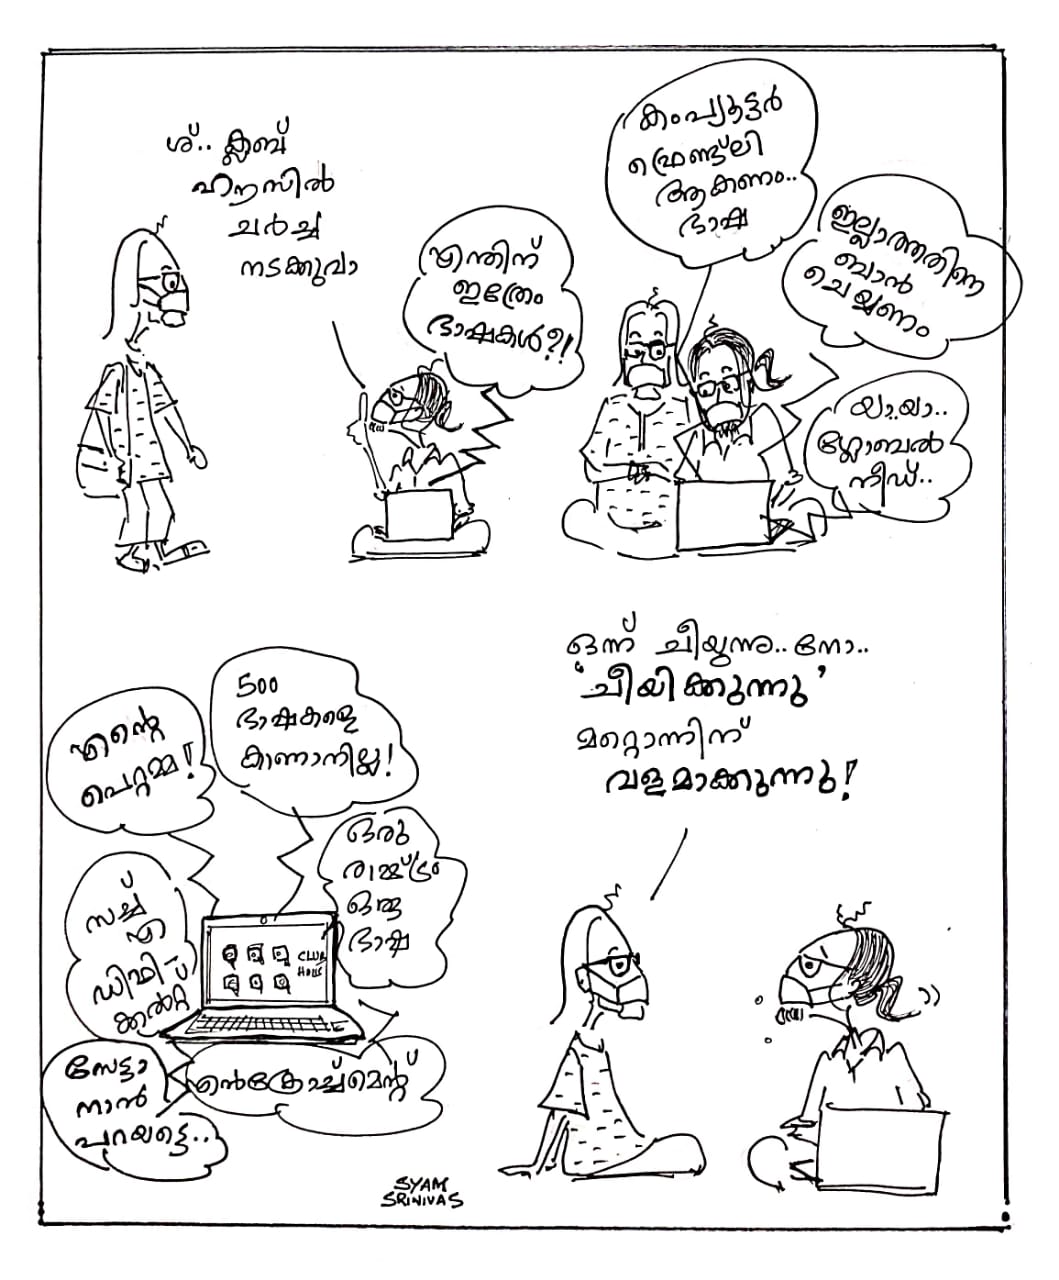 ശ്.. ക്ലബ്
ഹൗസിൽ
ചർച്ച
നടക്കുവാ
എന്തിന്
ഇത്രേം
ഭാഷകൾ?!
കംപ്യൂട്ടർ
ഫ്രെണ്ട്ലി
ആകണം..
ഭാഷ
ഇല്ലാത്തതിനെ
ബാൻ
ചെയ്യണം
യാ.യാ..
ഗ്ലോബൽ
നീഡ്..
എന്റെ
പെറ്റമ്മ!
500
ഭാഷകളെ
കാണാനില്ല!
ഒരു
രാഷ്ട്രം
ഒരു
ഭാഷ
സച്ച്
എ
ഡിഫി-
ക്കൽറ്റ്
CLUB
HOUSE
സേട്ടാ
നാൻ
പറയട്ടെ..
എൻക്രോച്ച്മെന്റ്
ഒന്ന് ചീയുന്നു.. നോ..
'ചീയിക്കുന്നു'
മറ്റൊന്നിന്
വളമാക്കുന്നു!
SYAM
SRINIVAS